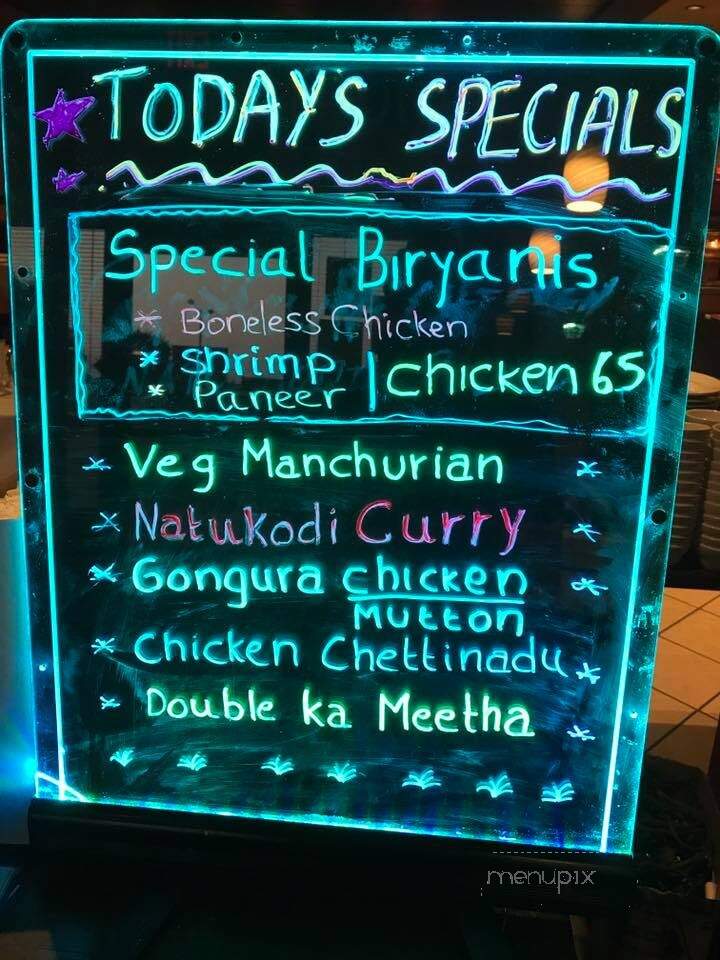 TODAYS SPECIALS
Special Biryanis
* Boneless Chicken
* Shrimp | Chicken 65
* Paneer
* Veg Manchurian *
* Natukodi Curry *
* Gongura chicken *
Mutton
* Chicken Chettinadu *
* Double ka Meetha *
menupix